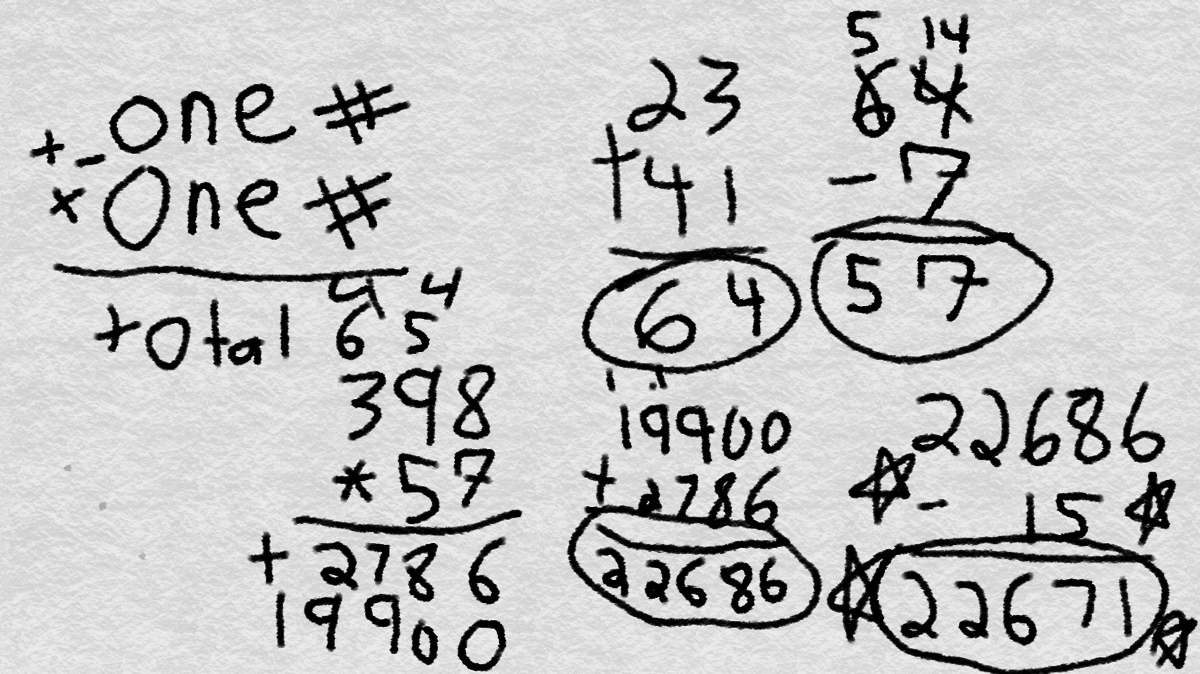 + - one #
× One #
total
4 4
6 5
398
* 57
+ 2786
19900
23
+ 41
64
5 14
64
- 7
57
1 1
19900
+ 2786
22686
22686
- 15
22671